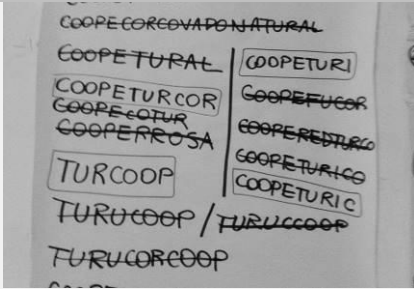 COOPECORCOVADONATURAL
COOPETURAL
COOPETURCOR
COOPECOTUR
COOPERROSA
TURCOOP
COOPETURI
COOPEFUCOR
COOPEREDTURCO
COOPETURICO
COOPETURIC
TURUCOOP / TURUCCOOP
TURUCORCOOP